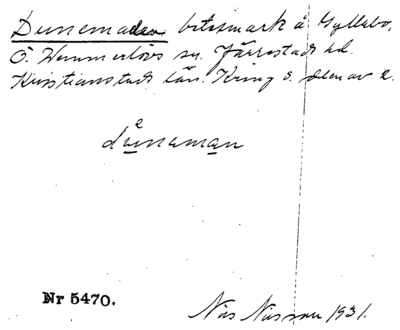 Dunemaden betesmark å Gyllebo,
Ö. Hemmerlövs sn. Järrestads hd.
Kristianstads län. Kring s. delen av 2.
duneman
Nr 5470.
Nils Nilsson 1931.